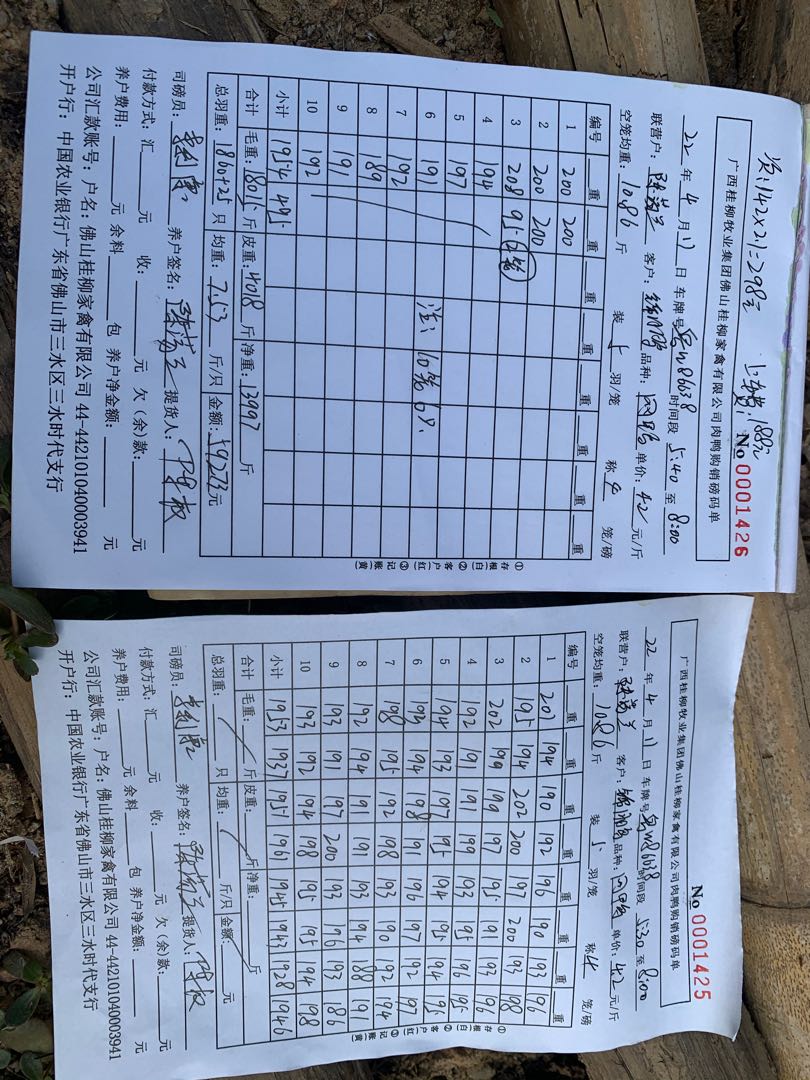 资:142×2.1=298元 上车费:188元
广西桂柳牧业集团佛山桂柳家禽有限公司肉鸭购销磅码单
No 0001426
22 年 4 月 11 日 车牌号 86038 时间段 5:40 至 8:00
联营户: 客户: 品种: 单价: 4.2 元/斤
空笼均重: 10.86 斤 装 5 羽/笼 称 4 笼/磅
编号 重 重 重 重 重 重 重 重
1 200 200
2 200 200
3 208 95 (2笼)
4 194
5 197
6 191 注: 10笼6只
7 192
8 189
9 191
10 192
小计 1954 495
合计 毛重: 18015 斤 皮重: 4018 斤 净重: 13997 斤
总羽重: 1860-25 只 均重: 7.53 斤/只 金额: 59273 元
司磅员: 养户签名: 提货人:
付款方式: 汇 元 收: 元 欠(余)款: 元
养户费用: 元 余料 包 养户净金额: 元
公司汇款账号: 户名: 佛山桂柳家禽有限公司 44-442101040003941
开户行: 中国农业银行广东省佛山市三水区三水时代支行
①存根(白) ②客户(红) ③记账(黄)
广西桂柳牧业集团佛山桂柳家禽有限公司肉鸭购销磅码单
No 0001425
22 年 4 月 11 日 车牌号 86038 时间段 5:30 至 8:00
联营户: 客户: 品种: 单价: 4.2 元/斤
空笼均重: 10.86 斤 装 5 羽/笼 称 4 笼/磅
编号 重 重 重 重 重 重 重 重
1 201 194 190 192 196 190 193 196
2 195 194 202 200 197 200 193 198
3 202 199 199 197 195 191 193 196
4 192 191 191 199 193 195 196 195
5 194 193 197 195 194 195 194 195
6 193 194 198 191 196 197 192 197
7 198 195 192 198 193 190 192 194
8 192 194 191 191 193 194 188 191
9 193 191 197 200 193 196 193 186
10 193 192 194 198 195 195 194 198
小计 1953 1937 1951 1961 1945 1943 1928 1946
合计 毛重: 斤 皮重: 斤 净重: 斤
总羽重: 只 均重: 斤/只 金额: 元
司磅员: 养户签名: 提货人:
付款方式: 汇 元 收: 元 欠(余)款: 元
养户费用: 元 余料 包 养户净金额: 元
公司汇款账号: 户名: 佛山桂柳家禽有限公司 44-442101040003941
开户行: 中国农业银行广东省佛山市三水区三水时代支行
①存根(白) ②客户(红) ③记账(黄)